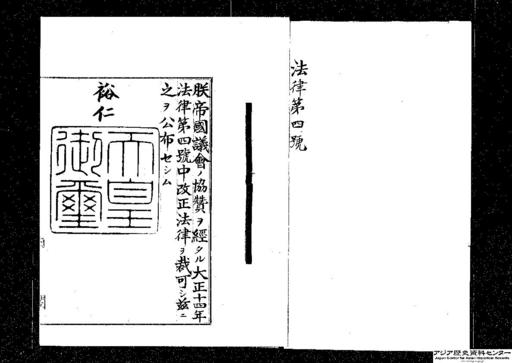 法律第四號
朕帝國議會ノ協贊ヲ經タル大正十四年
法律第四號中改正法律ヲ裁可シ茲ニ
之ヲ公布セシム
裕仁
天皇
御璽
アジア歴史資料センター
Japan Center for Asian Historical Records